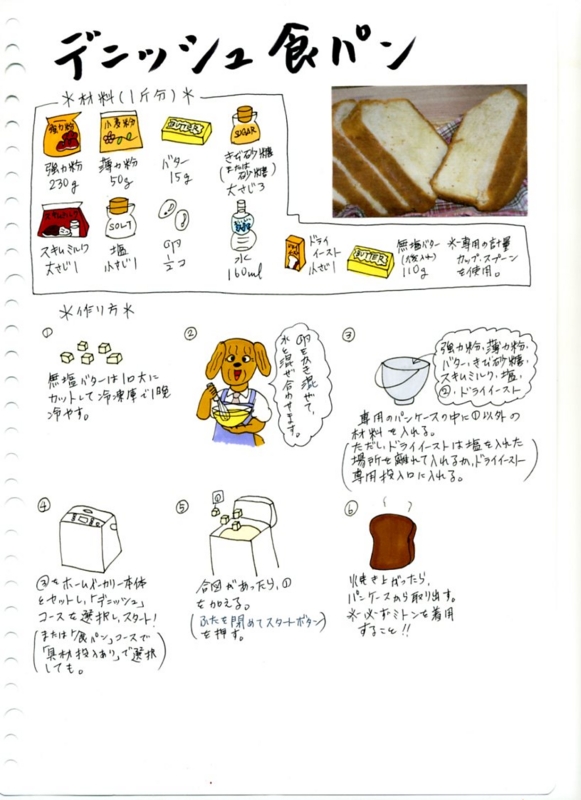 デニッシュ食パン
＊材料(1斤分)＊
強力粉
小麦粉
BUTTER
SUGAR
強力粉
230g
薄力粉
50g
バター
15g
きび砂糖
(または
砂糖)
大さじ3
スキムミルク
SOLT
スキムミルク
大さじ1
塩
小さじ1
卵
1/2コ
水
160ml
ドライ
イースト
小さじ1
BUTTER
無塩バター
110g
※専用の計量
カップ、スプーン
を使用。
＊作り方＊
①
無塩バターは1口大に
カットして冷凍庫で1晩
冷やす。
②
卵をかき混ぜて、
水と混ぜ合わせます。
③
強力粉・薄力粉・
バター・きび砂糖・
スキムミルク・塩・
②・ドライイースト
専用のパンケースの中に①以外の
材料を入れる。
(ただし、ドライイーストは塩を入れた
場所を離れて入れるか、ドライイースト
専用投入口に入れる。)
④
③をホームベーカリー本体
にセットし、「デニッシュ」
コースを選択し、スタート!
(または「食パン」コースで
「具材投入あり」で選択
しても。)
⑤
①
合図があったら、①
を加える。
(ふたを閉めてスタートボタン)
を押す。
⑥
焼き上がったら、
パンケースから取り出す。
※必ずミトンを着用
すること!!